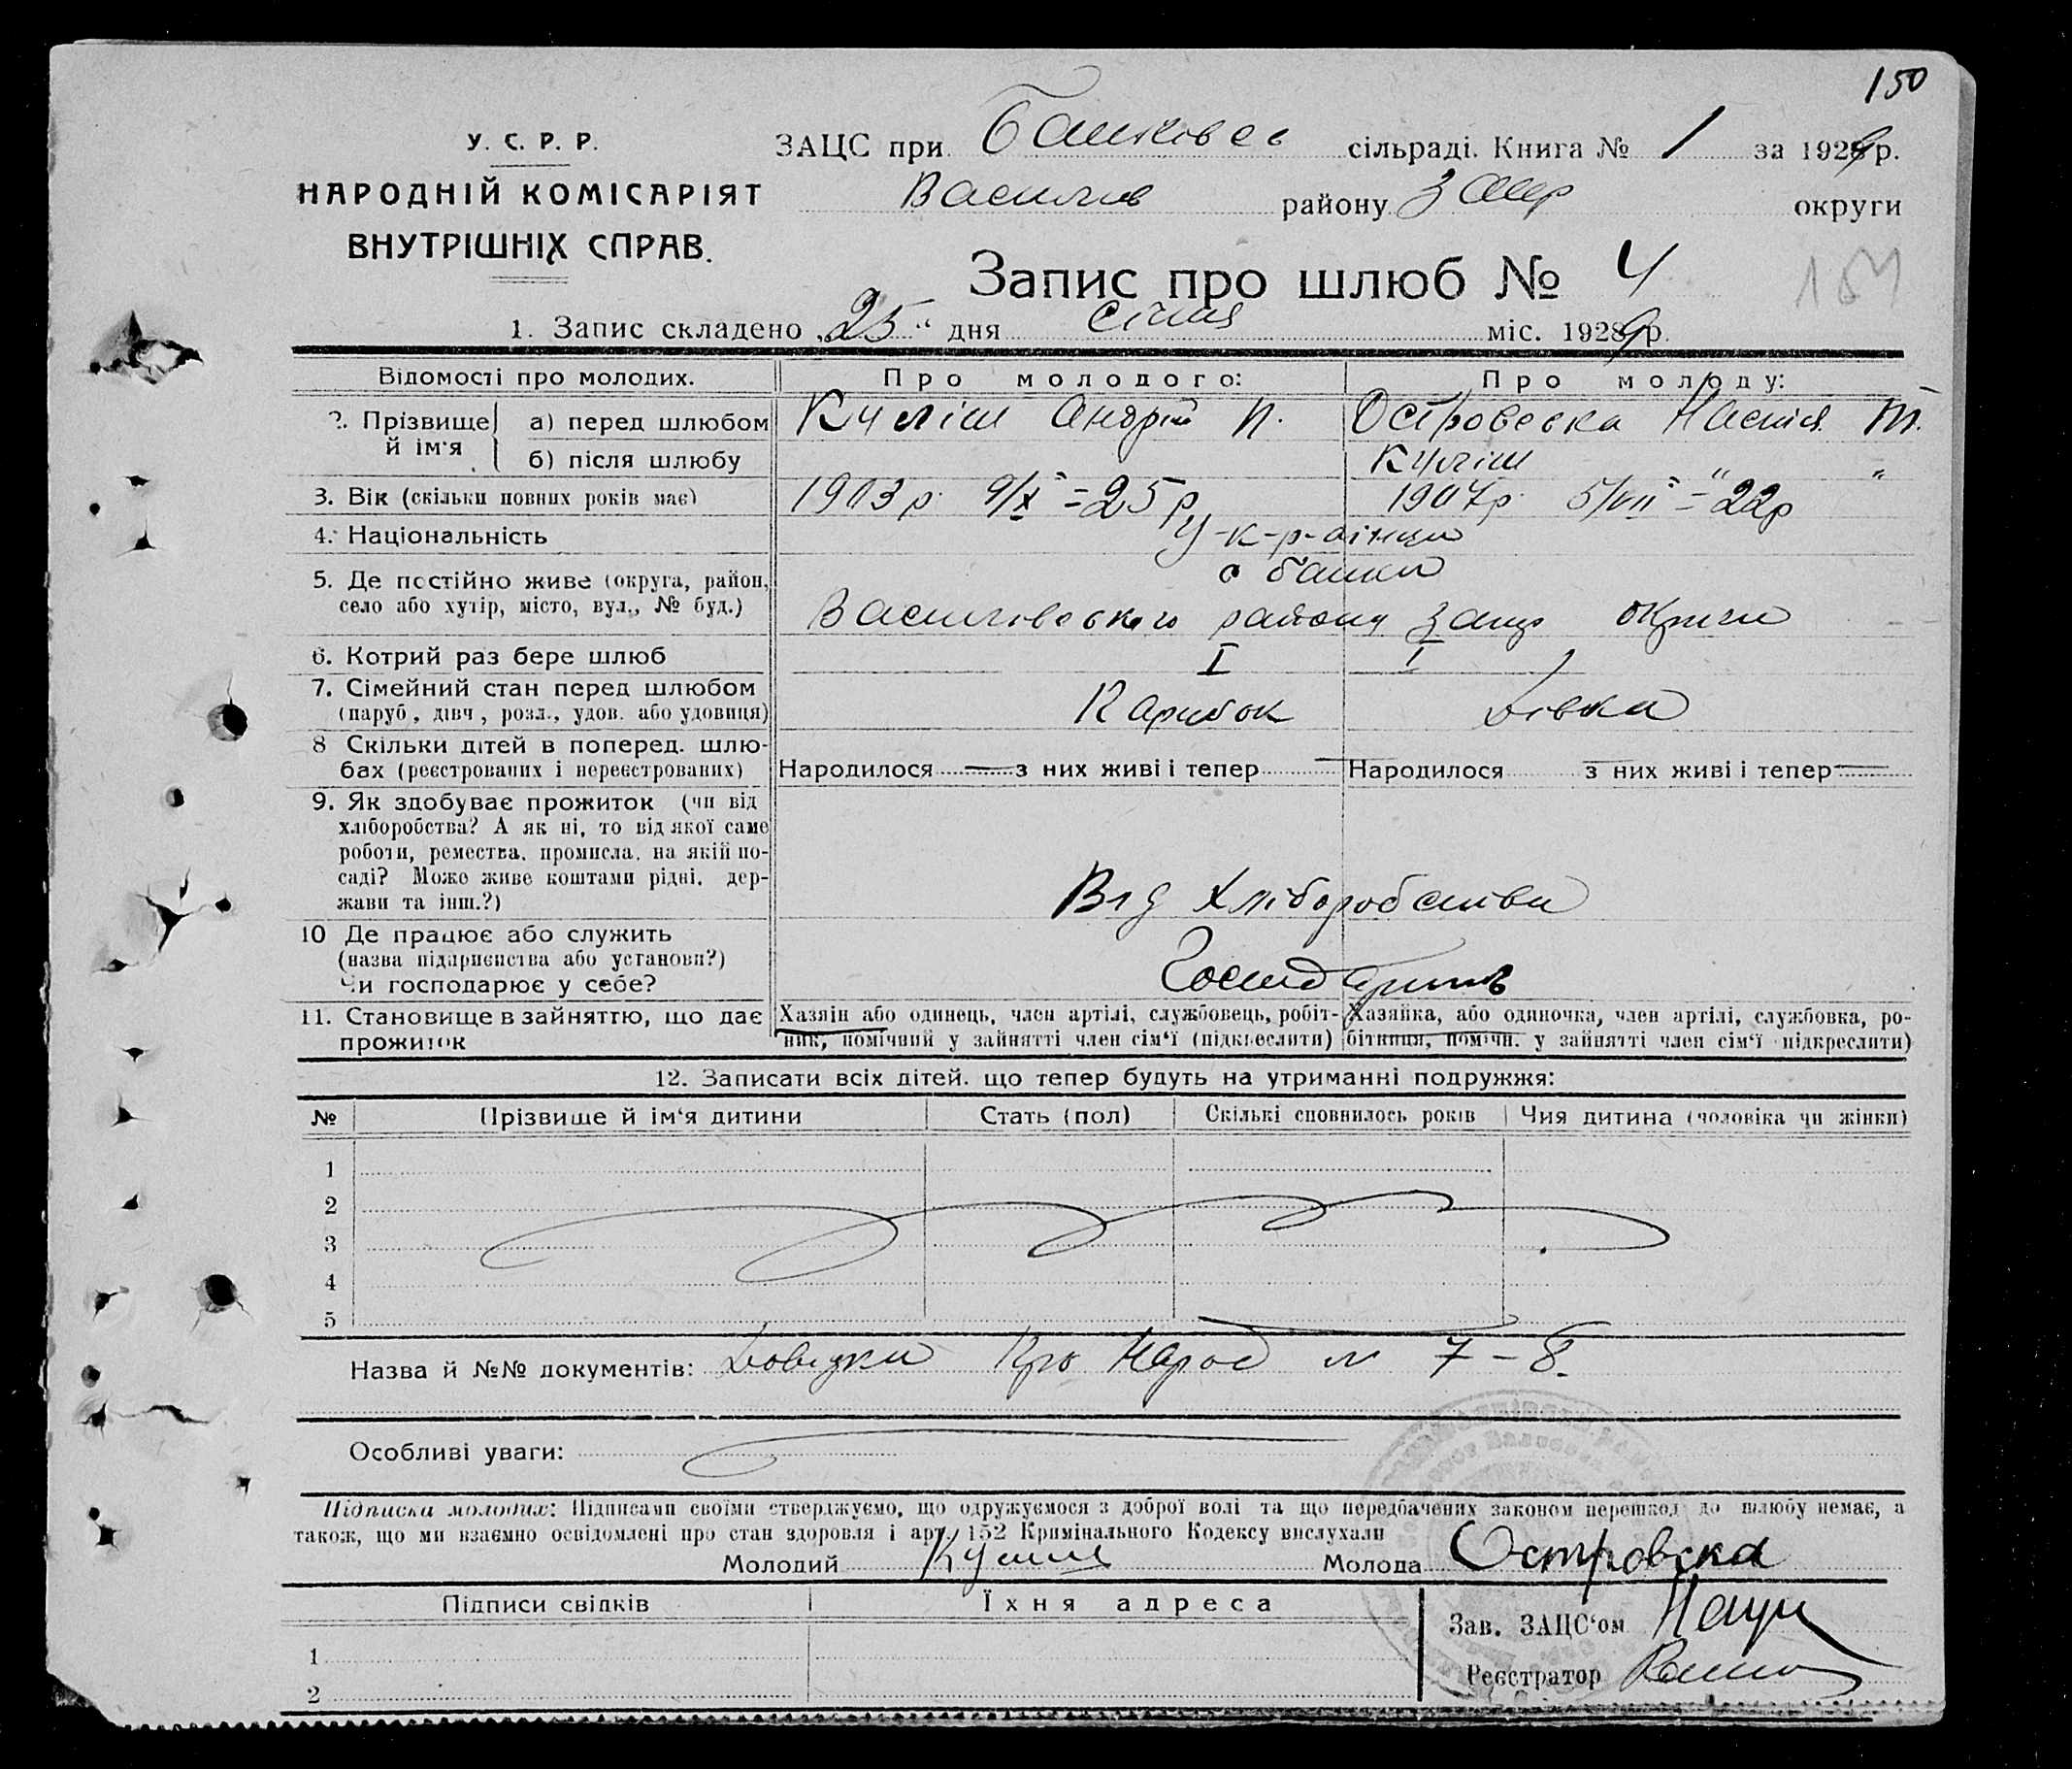 150
У. С. Р. Р.
НАРОДНІЙ КОМІСАРІЯТ
ВНУТРІШНІХ СПРАВ.
ЗАЦС при сільраді. Книга № 1 за 1929 р.
Василів району Запор округи
Запис про шлюб № 4
1. Запис складено „25“ дня січня міс. 1929 р.
Відомості про молодих. Про молодого: Про молоду:
2. Прізвище й ім'я а) перед шлюбом Куліш Андрій П. Островська Настя Т.
б) після шлюбу Куліш "
3. Вік (скільки повних років має) 1903 р. 9/X – 25 р 1907р. 5/VII – 22р
4. Національність У-к-р-аінци
5. Де постійно живе (округа, район, с Балки
село або хутір, місто, вул., № буд.) Василівського району Запор округи
6. Котрий раз бере шлюб I I
7. Сімейний стан перед шлюбом
(паруб., дівч., розл., удов. або удовиця) Парубок Дівка
8 Скільки дітей в поперед. шлю-
бах (реєстрованих і нереєстрованих) Народилося — з них живі і тепер — Народилося — з них живі і тепер —
9. Як здобуває прожиток (чи від
хліборобства? А як ні, то від якої саме
роботи, ремества, промисла, на якій по-
саді? Може живе коштами рідні, дер-
жави та інш.?) Від Хліборобства
10 Де працює або служить
(назва підприємства або установи?)
Чи господарює у себе?
11. Становище в зайняттю, що дає
прожиток
Хазяін або одинець, член артілі, службовець, робіт-
ник, помічний у зайнятті член сім'ї (підкреслити)
Хазяйка, або одиночка, член артілі, службовка, ро-
бітниця, помічн. у зайнятті член сім'ї (підкреслити)
12. Записати всіх дітей, що тепер будуть на утриманні подружжя:
№ Прізвище й ім'я дитини Стать (пол) Скількі сповнилось років Чия дитина (чоловіка чи жінки)
1
2
3
4
5
Назва й №№ документів: Довідки Про Народ № 7 – 8.
Особливі уваги:
Підписка молодих: Підписами своїми стверджуємо, що одружуємося з доброї волі та що передбачених законом перешкод до шлюбу немає, а
також, що ми взаємно освідомлені про стан здоровля і арт. 152 Кримінального Кодексу вислухали
Молодий Куліш Молода Островска
Підписи свідків Їхня адреса
Зав. ЗАЦС'ом
1
Реєстратор
2